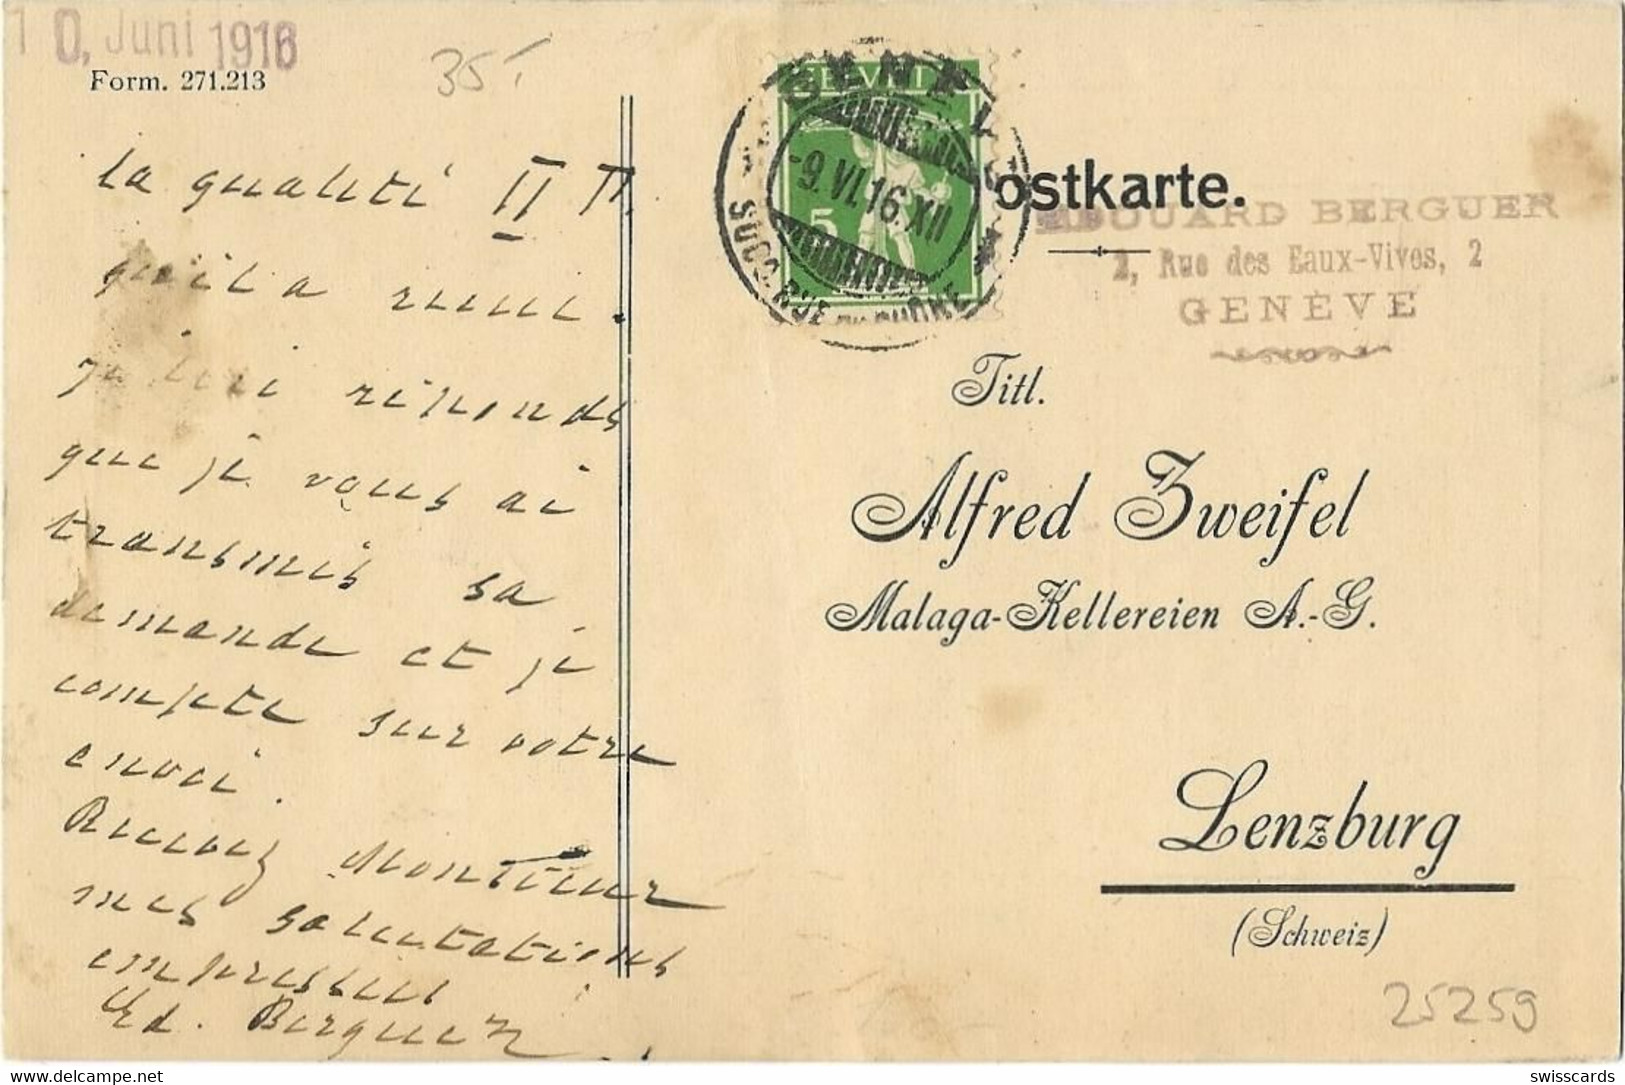 10. Juni 1916
Form. 271.213
35.-
la qualité II
qu'il a reçu.
Je lui réponds
que je vous ai
transmis sa
demande et je
compte sur votre
envoi.
Recevez Monsieur
mes salutations
empressées
Ed. Berguer
HELVETIA
5
GENÈVE
-9.VI.16.XII
SUCC. RUE DU RHÔNE
Postkarte.
EDOUARD BERGUER
2, Rue des Eaux-Vives, 2
GENÈVE
Titl.
Alfred Zweifel
Malaga-Kellereien A.-G.
Lenzburg
(Schweiz)
25259
swisscards